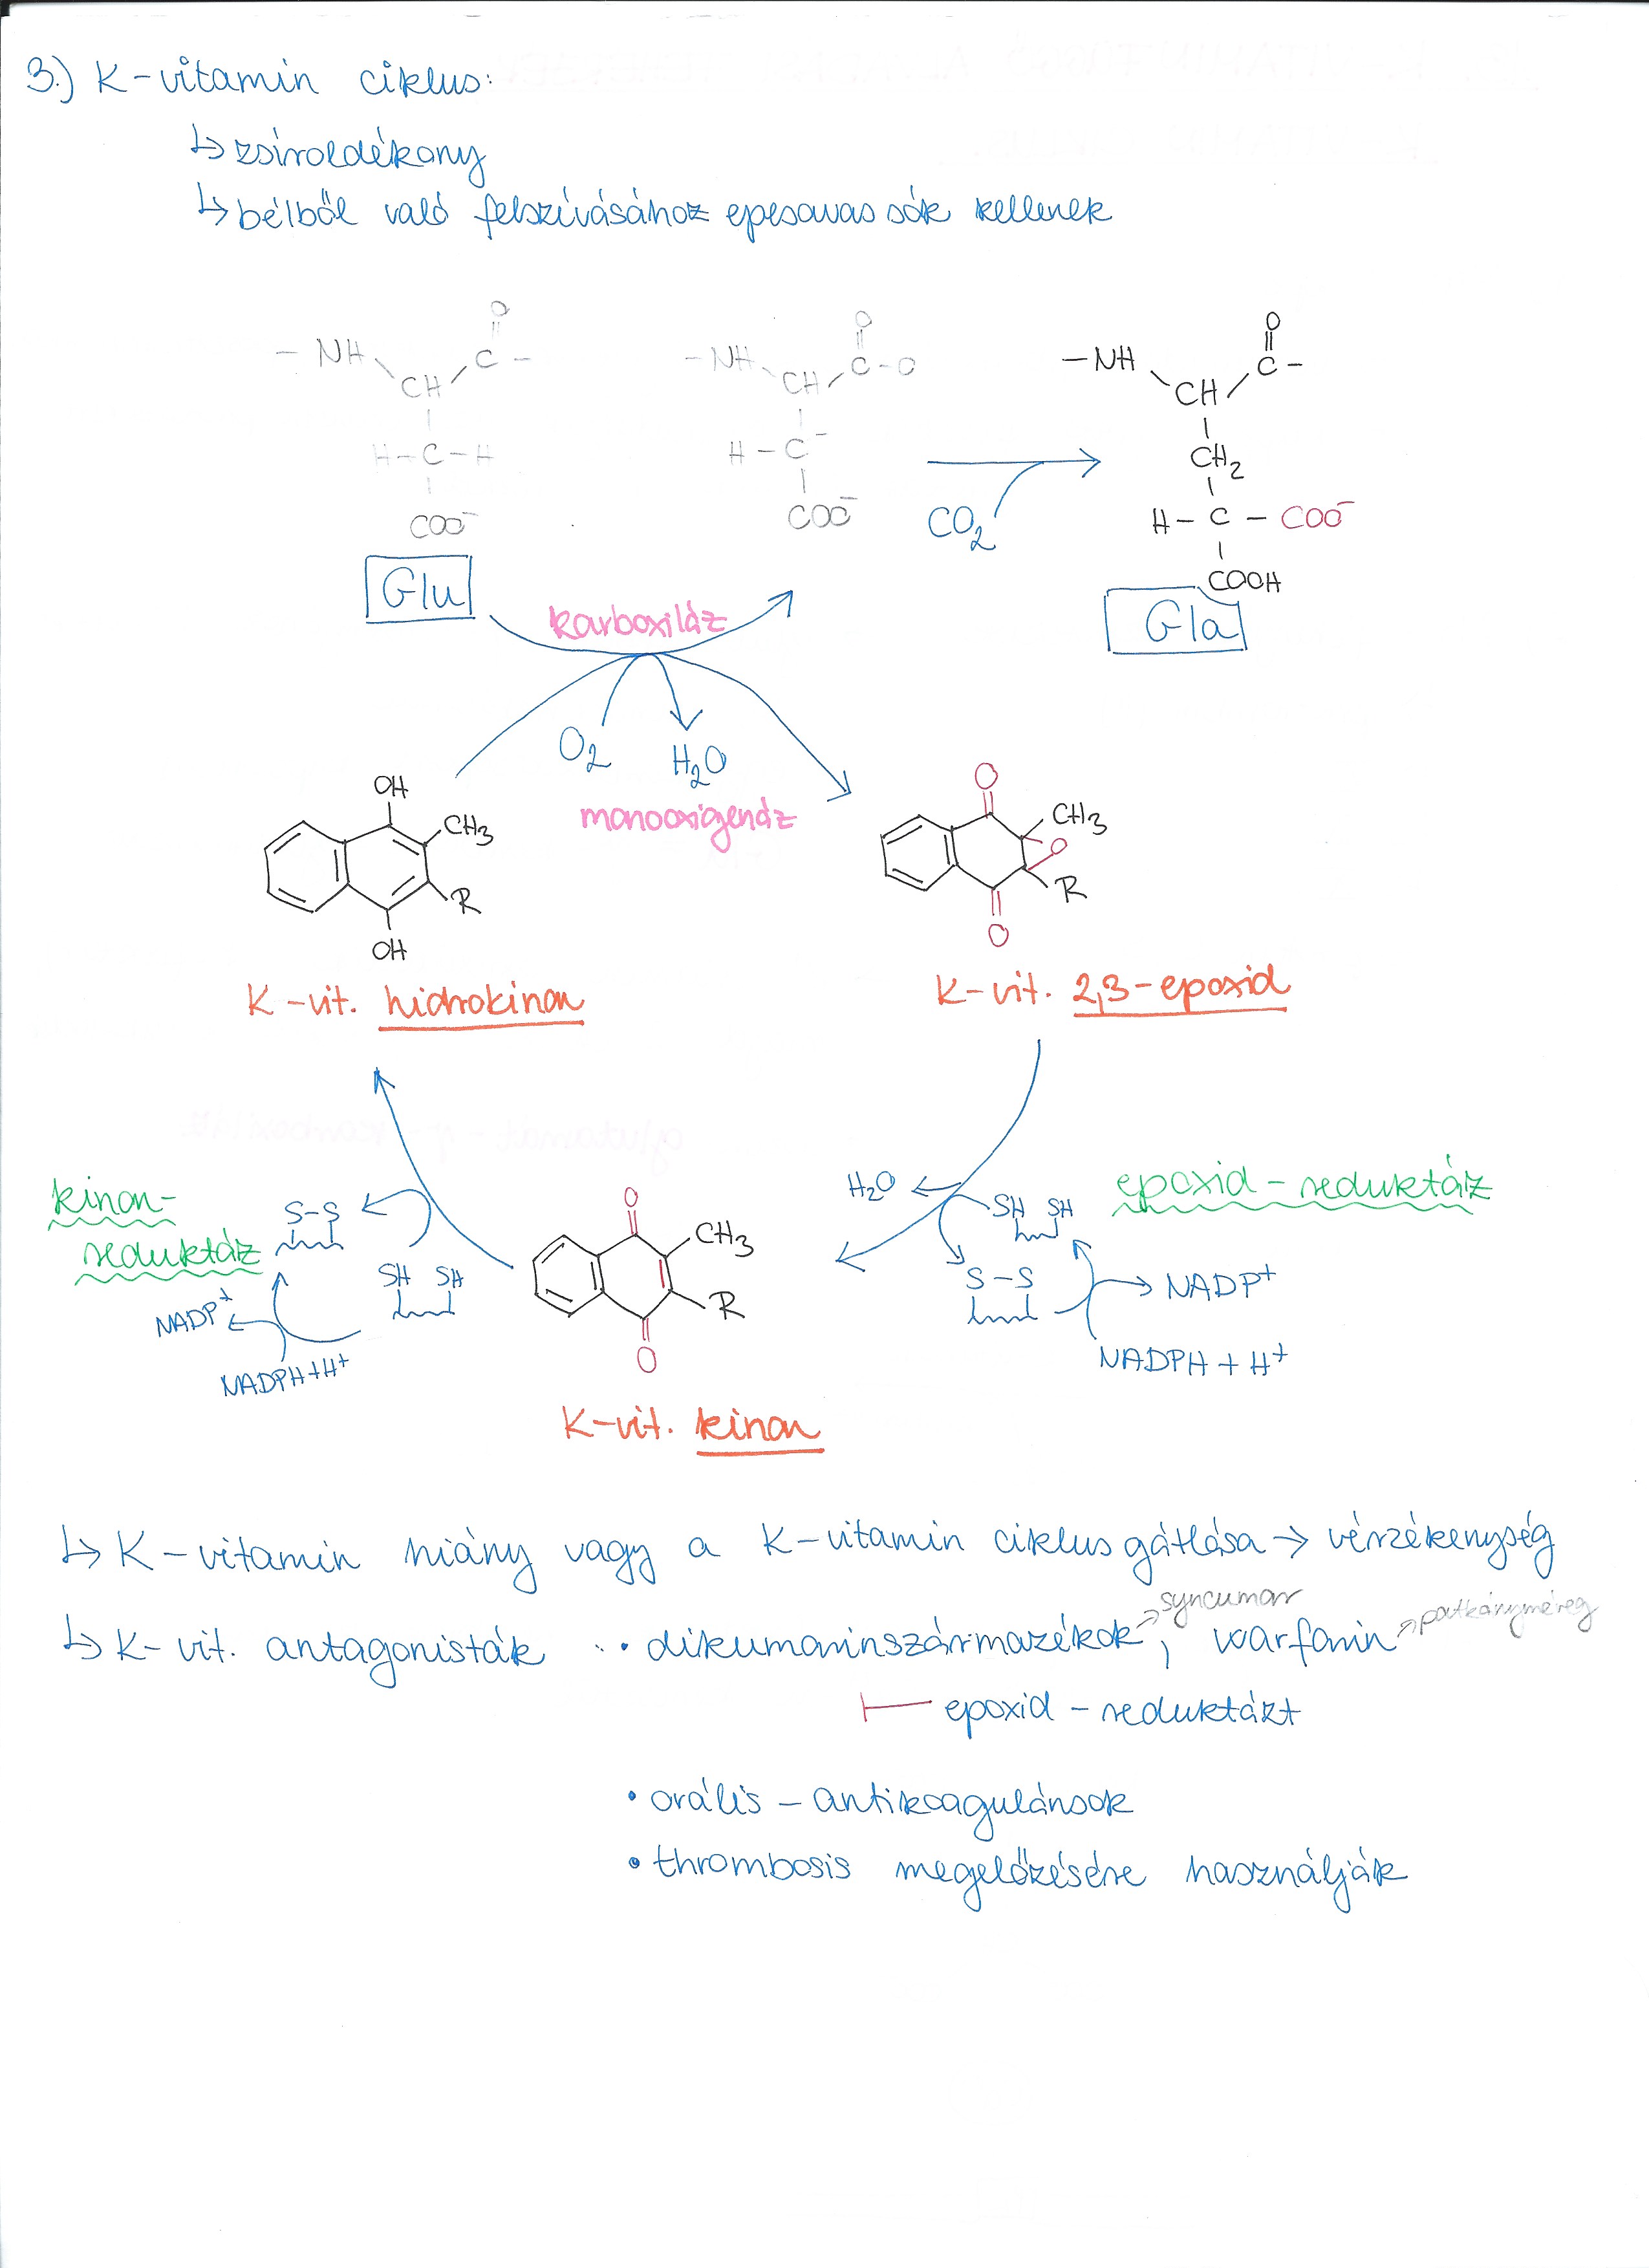 3.) K-vitamin ciklus:
↳ zsíroldékony
↳ bélből való felszívásához epesavas sók kellenek
O
- NH C -
CH
H-C-H
COO⁻
Glu
O
-NH C-O
CH
H-C⁻
COO⁻
CO₂
O
-NH C-
CH
CH₂
H-C-COO⁻
COOH
Gla
karboxiláz
O₂ H₂O
monooxigenáz
OH
CH₃
R
OH
K-vit. hidrokinon
O
CH₃
O
R
O
K-vit. 2,3-epoxid
kinon-
reduktáz
S-S
SH SH
NADP⁺
NADPH+H⁺
O
CH₃
R
O
K-vit. kinon
H₂O
SH SH
epoxid-reduktáz
S-S
NADP⁺
NADPH + H⁺
↳ K-vitamin hiány vagy a K-vitamin ciklus gátlása → vérzékenység
↳ K-vit. antagonisták • dikumarinszármazékok → syncumar, warfarin → patkányméreg
⊢ epoxid-reduktázt
• orális-antikoagulánsok
• thrombosis megelőzésére használják